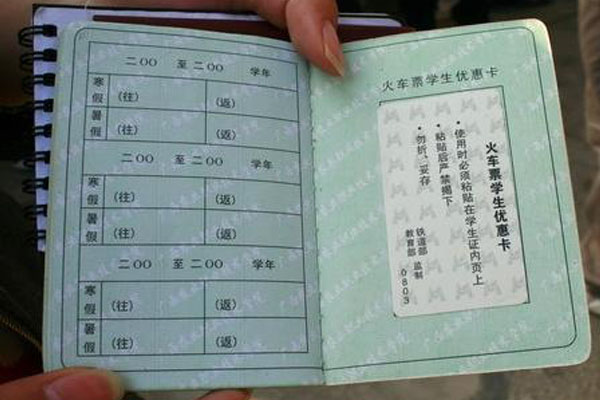 二OO　至二OO　学年
寒假 (往) (返)
暑假 (往) (返)
二OO　至二OO　学年
寒假 (往) (返)
暑假 (往) (返)
二OO　至二OO　学年
寒假 (往) (返)
暑假 (往) (返)
火车票学生优惠卡
火车票学生优惠卡
• 使用时必须粘贴在学生证内页上
• 粘贴后严禁揭下
• 勿折、妥存
铁道部
教育部
监制
0603